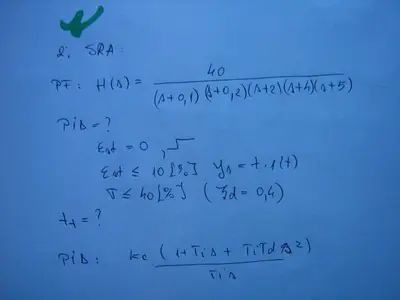 2; SRA:
PF: H(s) = 40 / (s+0,1)(s+0,2)(s+2)(s+4)(s+5)
PiD = ?
εst = 0 ,
εst ≤ 10 [%] ys = t · 1(t)
σ ≤ 40 [%] (ξd = 0,4)
tt = ?
PiD: kc (1+Tis + TiTd s²) / Tis